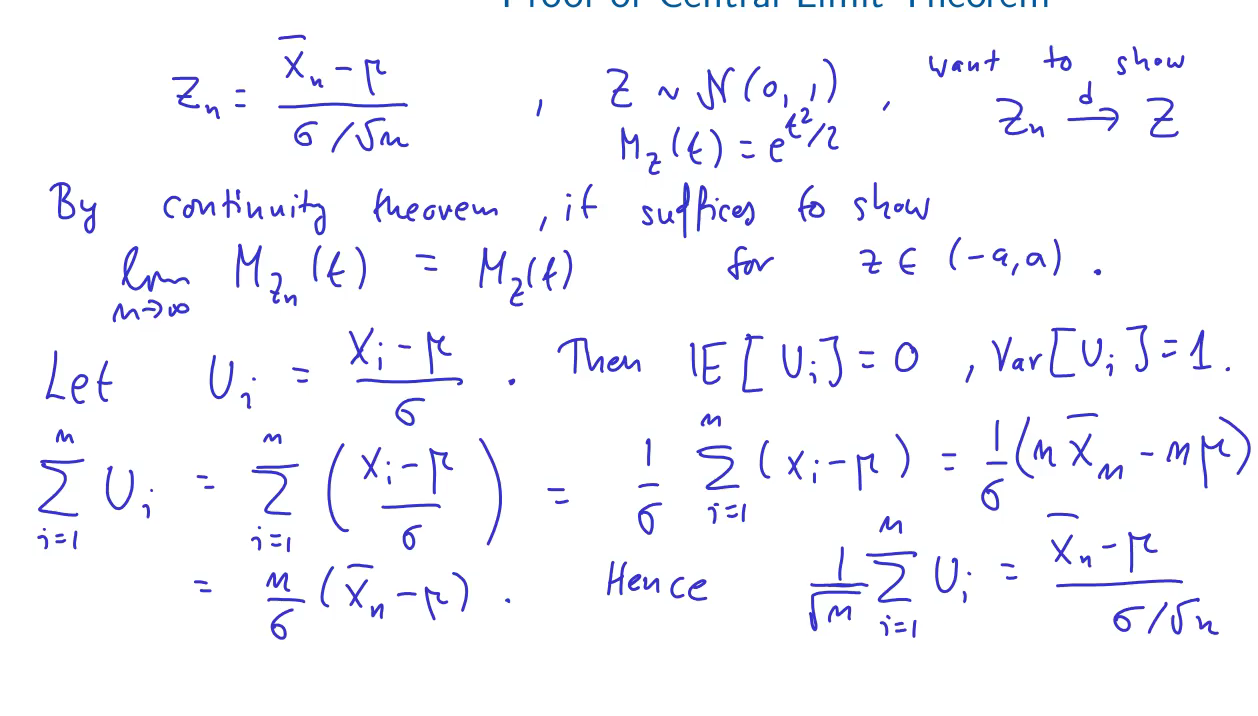 Proof of Central Limit Theorem
Zₙ = (X̄ₙ − μ) / (σ/√n) , Z ~ N(0, 1) , want to show
M_Z(t) = e^{t²/2} Zₙ →ᵈ Z
By continuity theorem, it suffices to show
lim_{n→∞} M_{Zₙ}(t) = M_Z(t) for z ∈ (−a, a) .
Let Uᵢ = (Xᵢ − μ)/σ . Then 𝔼[Uᵢ] = 0 , Var[Uᵢ] = 1 .
∑_{i=1}^{n} Uᵢ = ∑_{i=1}^{n} ((Xᵢ − μ)/σ) = 1/σ ∑_{i=1}^{n} (Xᵢ − μ) = 1/σ (n X̄ₙ − nμ)
= n/σ (X̄ₙ − μ) . Hence 1/√n ∑_{i=1}^{n} Uᵢ = (X̄ₙ − μ) / (σ/√n)